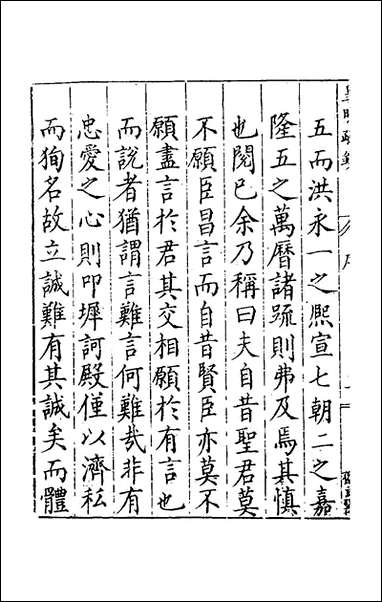 五而洪永一之熙宣七朝二之嘉
隆五之萬曆諸疏則弗及焉其慎
也閱已余乃稱曰夫自昔聖君莫
不願臣昌言而自昔賢臣亦莫不
願盡言於君其交相願於有言也
而說者猶謂言難言何難哉非有
忠愛之心則叩墀訶殿僅以濟私
而狥名故立誠難有其誠矣而體